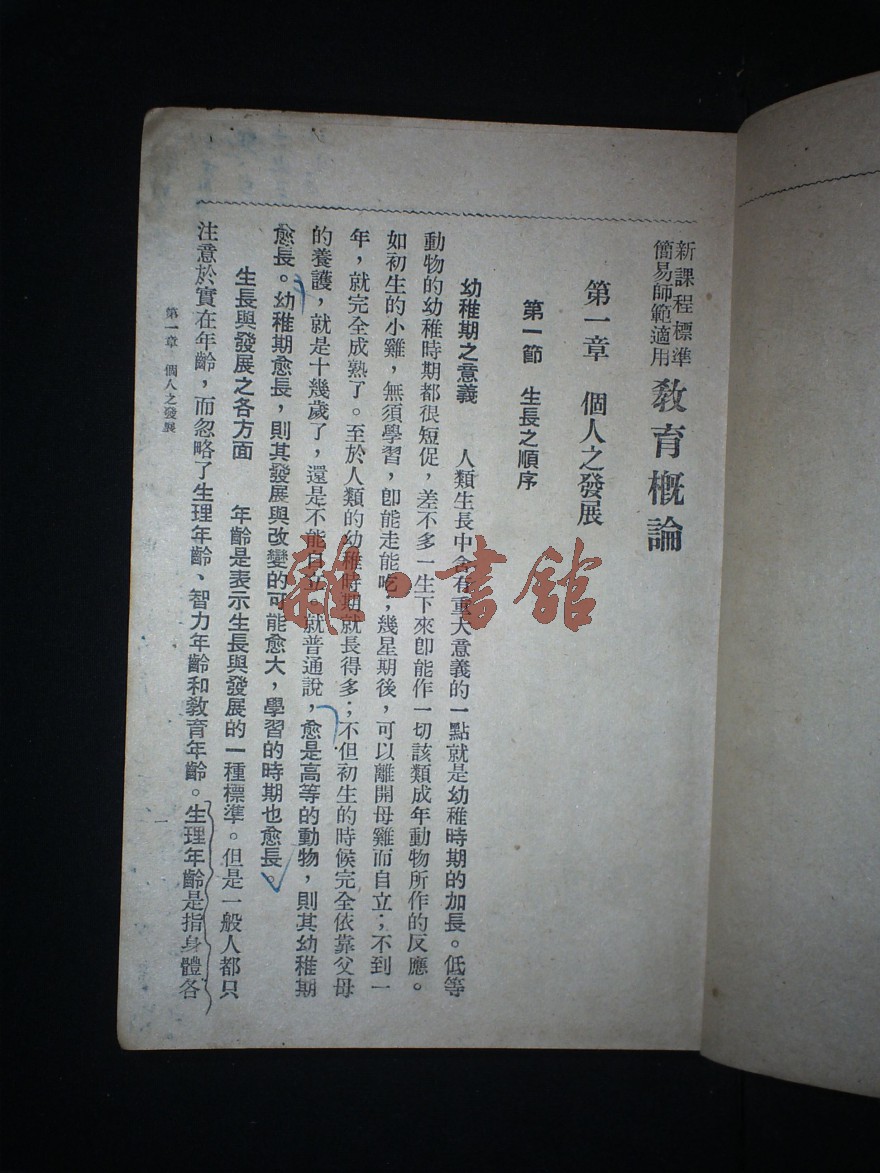 新課程標準
簡易師範適用
教育概論
第一章　個人之發展
第一節　生長之順序
幼稚期之意義　人類生長中含有重大意義的一點就是幼稚時期的加長。低等
動物的幼稚時期都很短促，差不多一生下來即能作一切該類成年動物所作的反應。
如初生的小雞，無須學習，即能走能吃，幾星期後，可以離開母雞而自立；不到一
年，就完全成熟了。至於人類的幼稚時期就長得多；不但初生的時候完全依靠父母
的養護，就是十幾歲了，還是不能自立。就普通說，愈是高等的動物，則其幼稚期
愈長。幼稚期愈長，則其發展與改變的可能愈大，學習的時期也愈長。
生長與發展之各方面　年齡是表示生長與發展的一種標準。但是一般人都只
注意於實在年齡，而忽略了生理年齡、智力年齡和教育年齡。生理年齡是指身體各
第一章　個人之發展
一
雜·書館